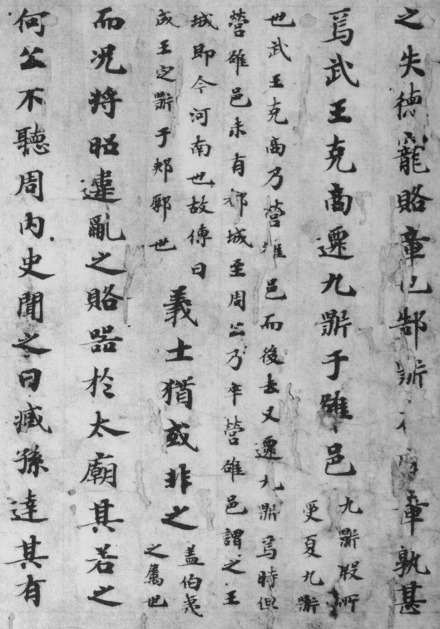 之失德寵賂章也郜鼎在廟章孰甚
焉武王克商遷九鼎于雒邑
九鼎殷所
受夏九鼎
也武王克商乃營雒邑而後去又遷九鼎焉時但
營雒邑未有都城至周公乃卒營雒邑謂之王
城即今河南也故傳曰
成王定鼎于郟鄏也
義士猶或非之
蓋伯夷
之屬也
而況將昭違亂之賂器於太廟其若之
何公不聽周內史聞之曰臧孫達其有